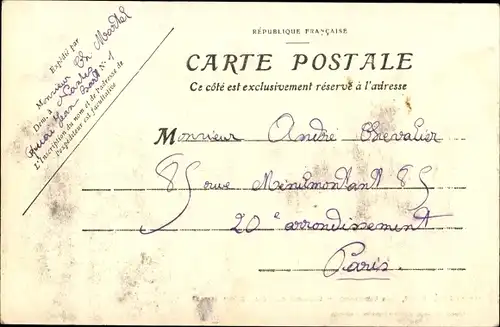 Expédié par
Monsieur Ch Martel
Dem. à Nantes
Quai Jean Bart N° 1
L'Inscription du nom et de l'adresse de
l'expéditeur est facultative
RÉPUBLIQUE FRANÇAISE
CARTE POSTALE
Ce côté est exclusivement réservé à l'adresse
Monsieur André Chevalier
85 rue Ménilmontant 85
20e arrondissement
Paris.